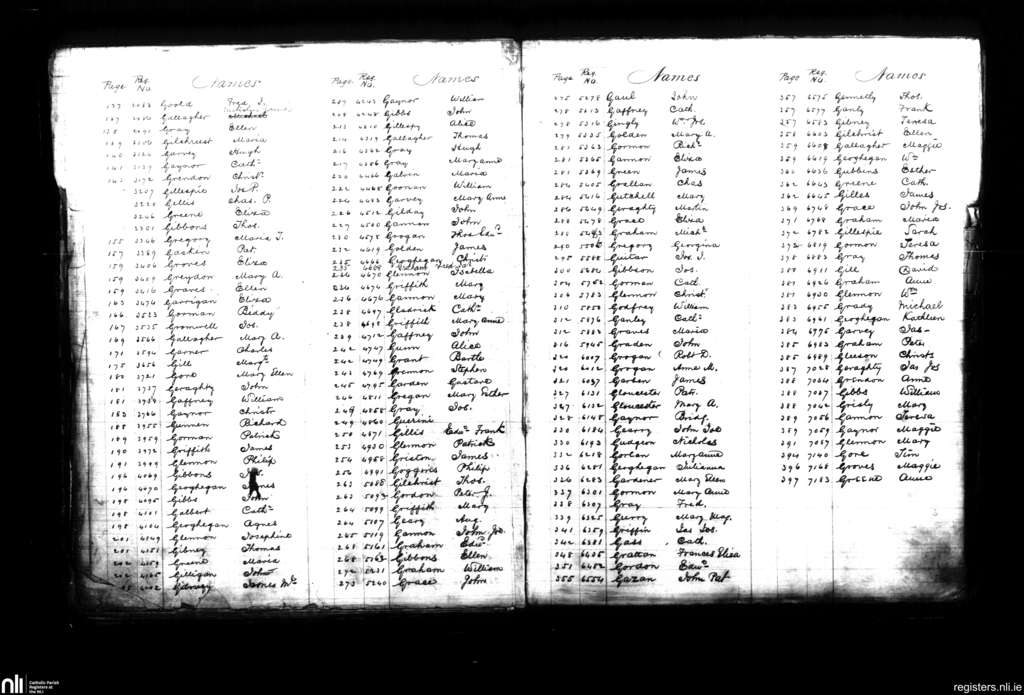 Page Reg. No. Names
137 Goold Fred. J.
137 Gallagher
138 Gray Ellen
139 Gilchriest Maria
140 Garvey Hugh
141 Gaynor Cath.
143 3172 Grendon Christ.
3207 Gillespie Jos P.
Gillis Chas. P.
3246 Greene Eliza
3301 Gibbons Thos.
155 3346 Gregory Maria T.
157 3369 Gaskin Pat.
159 3406 Groves Eliza
159 3409 Greydon Mary A.
159 3416 Graves Ellen
163 3474 Garrigan Eliza
166 3523 Gorman Biddy
167 3535 Gromwell Jos.
169 3566 Gallagher Mary A.
171 3594 Garner Charles
175 3656 Gill Margt
180 3721 Gore Mary Ellen
181 3737 Geraghty John
181 3739 Gaffney William
183 3766 Gaynor Christr
188 3955 Gunnen Richard
189 3959 Gorman Patrick
190 3972 Griffith James
191 3999 Glennon Philip
196 4069 Gibbons
196 4070 Geoghegan Agnes
198 4095 Gibbs John
198 4101 Galbert Cath.
198 4104 Geoghegan Agnes
201 4149 Glennon Josephine
201 4151 Gibney Thomas
202 4159 Greene Maria
202 4165 Gilligan John
Gilmay James Mc
Page Reg. No. Names
207 4243 Gaynor William
208 4248 Gibbs John
213 4310 Gillespy Alice
214 4319 Gallagher Thomas
216 4362 Gray Hugh
217 4386 Gray Mary Anne
220 4426 Galvin Maria
222 4468 Goonan William
224 4483 Garvey Mary Anne
226 4512 Gilday John
227 4520 Gannon John
230 4578 Grogan Thos Edwd
232 4619 Golden James
235 4666 Geoghegan Christ.
236 4670 Glennon Isabella
236 4674 Griffith Mary
236 4676 Gannon Mary
238 4697 Gladrick Cath.
238 4698 Griffith Mary Anne
239 4712 Gaffney John
242 4747 Gunn Alice
242 4749 Grant Bartle
243 4769 Gremon Stephen
245 4795 Garden Gustave
246 4811 Gregan Mary Esther
249 4858 Gray Jos.
249 4860 Guerini
250 4871 Gillis Edwd Frank
253 4930 Glennon Patrick
254 4958 Griston James
256 4991 Goggons Philip
263 5088 Gilchrist Thos.
263 5093 Gordon Peter J.
264 5099 Griffith Mary
264 5107 Geary Aug.
265 5119 Garmon John Jos.
268 5161 Graham Edwd
268 5163 Gibbons Ellen
272 5231 Graham William
273 5240 Grace John
Page Reg. No. Names
275 5278 Gaul John
278 5313 Gaffney Cath.
278 5316 Gingly Wm Jos.
279 5335 Golden Mary A.
281 5363 Gormon Richd
281 5365 Gannon Eliza
281 5369 Green James
284 5405 Goellan Chas
284 5416 Getchell Mary
286 5449 Geraghty Martin
288 5478 Grace Eliza
288 5493 Graham Michl
290 5506 Gregory Georgina
295 5588 Guitar Jos. J.
300 5684 Gibbson Jos.
306 5762 Gorman Cath.
308 5783 Glennon Christ.
310 5853 Godfrey William
312 5876 Ganley Cath.
312 5883 Graves Maria
316 5945 Graden John
320 6007 Grogan Robt D.
320 6012 Grogan Anne M.
321 6037 Garken James
327 6131 Gloucester Patr.
327 6132 Gloucester Mary A.
328 6148 Gaynor Bridg.
330 6184 Geary John Jos
330 6193 Gudgeon Nicholas
332 6218 Gorlan Mary Anne
334 6251 Geoghegan Julianna
336 6283 Gardener Mary Ellen
337 6301 Gormon Mary Anne
338 6307 Gray Fred.
339 6325 Gierry Mary Mag.
341 6359 Griffin Jas Jos.
342 6381 Gass Cath.
345 6435 Gratton Frances Eliza
351 6482 Gordon Edwd
355 6554 Gazan John Pat
Page Reg. No. Names
357 6575 Gennetly Thos.
357 6577 Ganly Frank
357 6583 Gibney Teresa
358 6603 Gilchrist Ellen
359 6608 Gallagher Maggie
359 6619 Geoghegan Wm
360 6636 Gubbins Esther
362 6643 Greene Cath.
362 6645 Gilles James
369 6748 Grace John Jos.
371 6768 Graham Maria
372 6782 Gillespie Sarah
372 6819 Gormon Teresa
376 6848 Gray Thomas
380 6911 Gill David
381 6926 Graham Anne
381 6930 Glennon Wm
383 6955 Grady Michael
383 6961 Geoghegan Kathleen
384 6975 Garvey Jas
385 6983 Graham Peter
385 6989 Gleeson Christr
387 7028 Geraghty Jas Jos
388 7034 Grendon Anne
388 7037 Gibbs William
388 7042 Gristy Mary
389 7056 Gannon Teresa
389 7059 Gaynor Maggie
391 7087 Glennon Mary
394 7140 Gore Tim
396 7168 Groves Maggie
397 7183 Greene Anne
nli Catholic Parish Registers at the NLI
registers.nli.ie